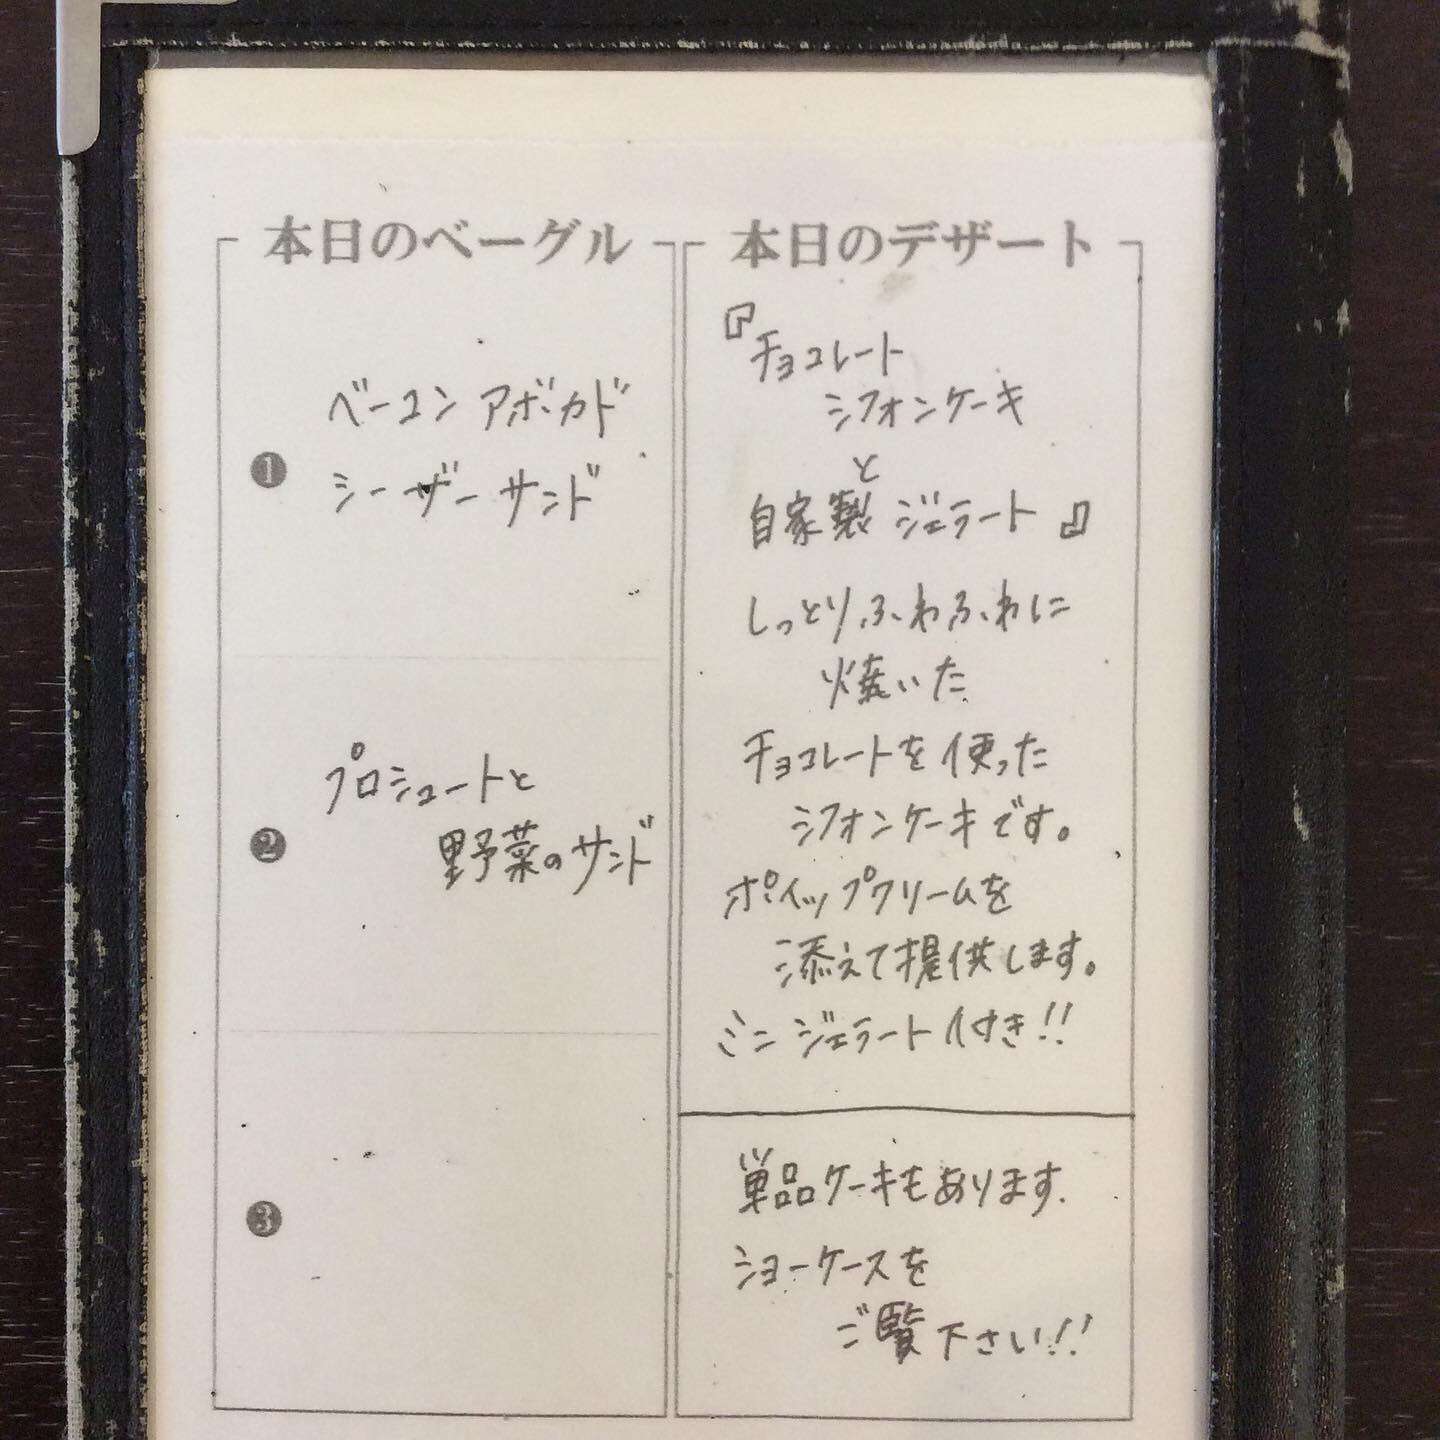 本日のベーグル
❶
ベーコン アボカド
シーザーサンド
❷
プロシュートと
野菜のサンド
❸
本日のデザート
『チョコレート
シフォンケーキ
と
自家製 ジェラート』
しっとりふわふわに
焼いた
チョコレートを使った
シフォンケーキです。
ホイップクリームを
添えて提供します。
ミニジェラート付き!!
単品ケーキもあります.
ショーケースを
ご覧下さい!!